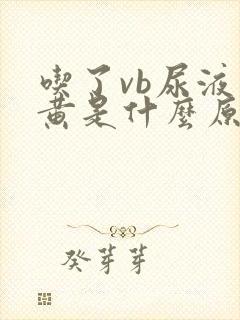 喫了vb尿液
黃是什麼原
癸芽芽